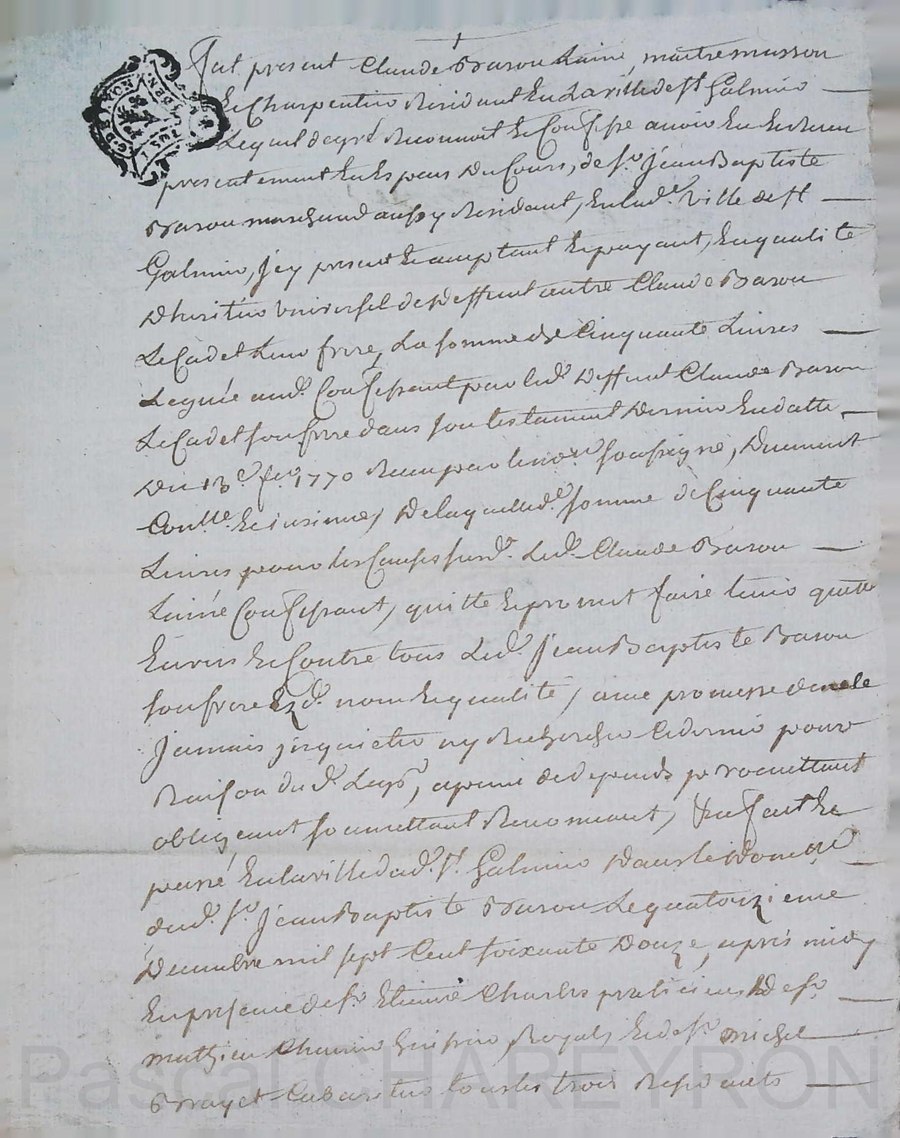 fut présent Claude Barou Lainé, maitre masson
Et Charpentier Résidant En La ville de St Galmier
Lequel de gré Reconnoit Et Confesse avoir Eu Et Receu
présentement En Espèces Du Cours, de Sr Jean Baptiste
Barou marchand aussy Résidant, En lade ville de St
Galmier, Icy présent Et comptant Et payant, En qualité
D'héritier universel de Deffunt autre Claude Barou
Le Cadet Leur frère, La somme de Cinquante Livres
Léguée aud. Confessant par led. Deffunt Claude Barou
Le Cadet son frère dans son testament Dernier En datte
Du 13e fer 1770 Receu par le nore soussigné, Duement
Conllé Et insinué, De laquelle de somme de Cinquante
Livres pour les Causes susd. Led. Claude Barou
Lainé Confessant, quitte Et promet faire tenir quitte
Envers Et Contre tous Led. Jean Baptiste Barou
son frère Ezd. nom Et qualité, avec promesse de ne le
Jamais inquieter ny Rechercher Ce dernier pour
Raison dud. Legs, a peine de depends promettant
obligeant soumettant Renonceant, Ainsy fait Et
passé En la ville dud. St Galmier Dans le Domicile
dud. Sr Jean Baptiste Barou Le quatorzieme
Decembre mil sept Cent soixante Douze, après midy
En présence de Sr Etienne Charles praticien Et de Sr
mathieu Royal, Et de Sr michel
Brayet Cabaretier tous les trois Résidents
Pascal CHAREYRON